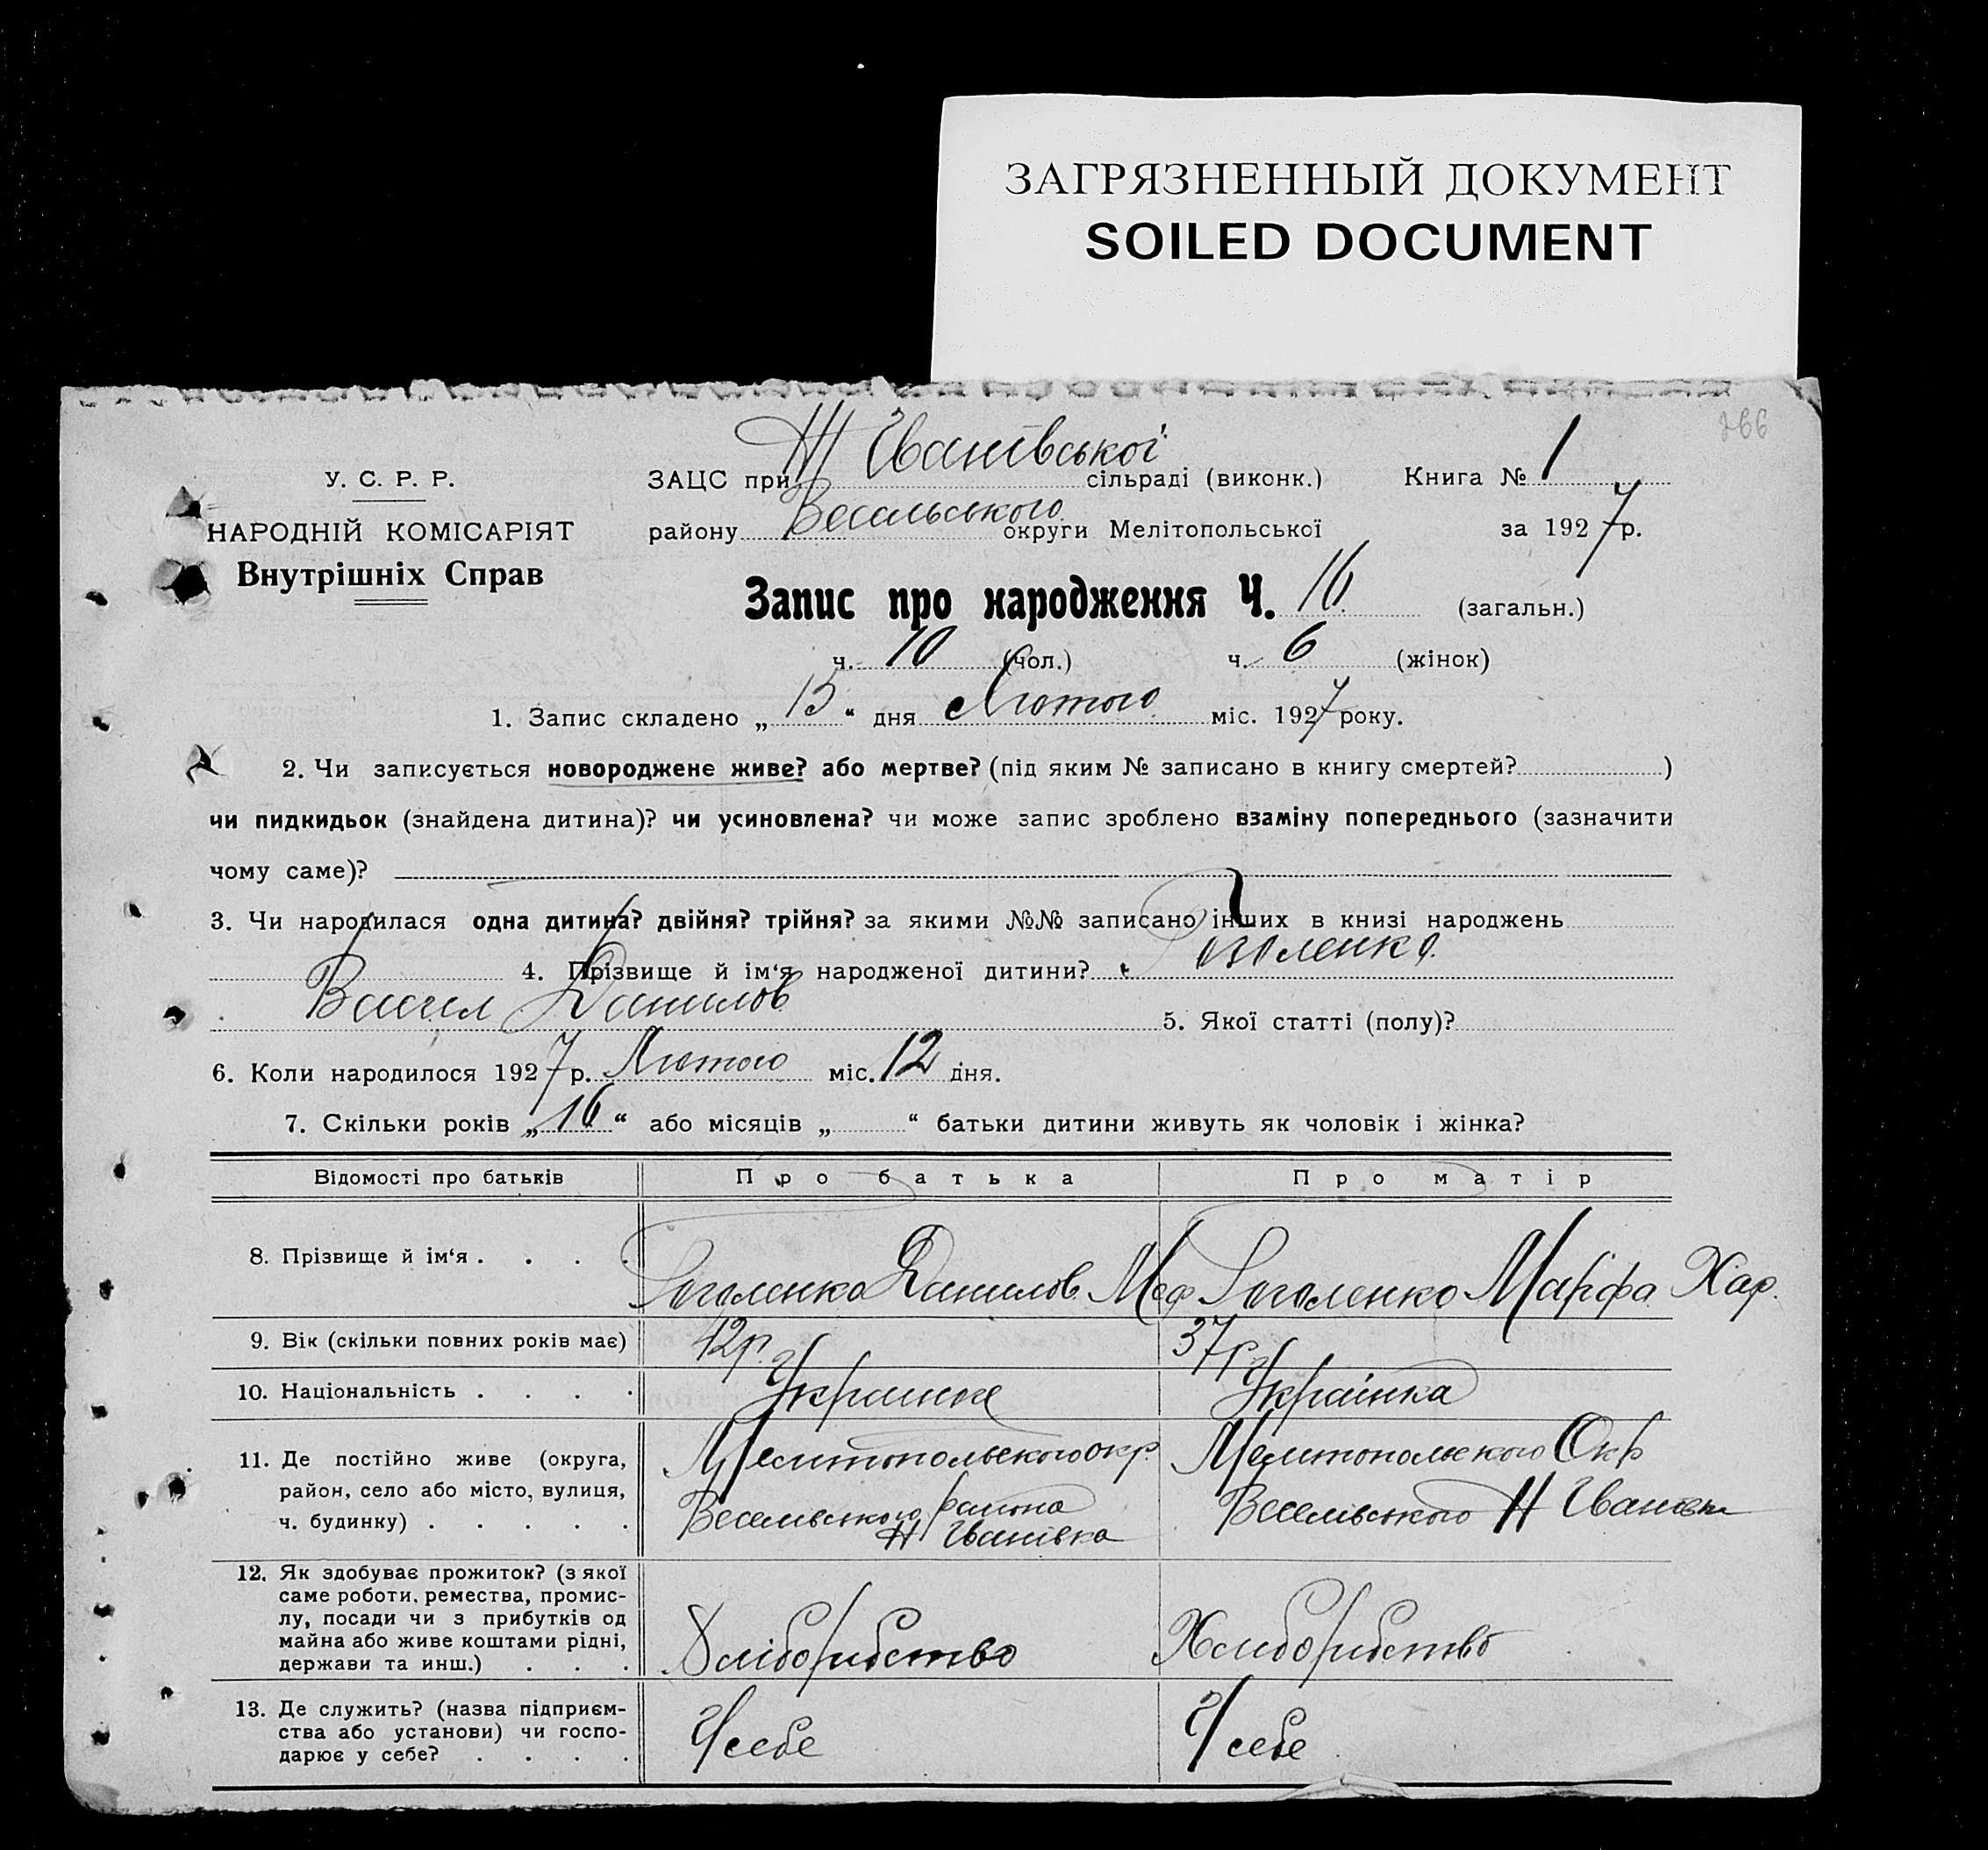 ЗАГРЯЗНЕННЫЙ ДОКУМЕНТ
SOILED DOCUMENT
266
У. С. Р. Р.
НАРОДНІЙ КОМІСАРІЯТ
Внутрішніх Справ
ЗАЦС при Н Іванівської сільраді (виконк.) Книга № 1
району Весельського округи Мелітопольської за 1927 р.
Запис про народження Ч. 16 (загальн.)
ч. 10 (чол.) ч. 6 (жінок)
1. Запис складено „15“ дня Лютого міс. 1927 року.
2. Чи записується новороджене живе? або мертве? (під яким № записано в книгу смертей? )
чи пидкидьок (знайдена дитина)? чи усиновлена? чи може запис зроблено взаміну попереднього (зазначити
чому саме)?
3. Чи народилася одна дитина? двійня? трійня? за якими №№ записано інших в книзі народжень
4. Прізвище й ім‘я народженої дитини?
Данилов 5. Якої статті (полу)?
6. Коли народилося 1927 р. Лютого міс. 12 дня.
7. Скільки років „16“ або місяців „ “ батьки дитини живуть як чоловік і жінка?
Відомості про батьків Про батька Про матір
8. Прізвище й ім‘я . . . . Данилов Меф Марфа Хар.
9. Вік (скільки повних років має) 42р. 37р
10. Національність . . . . Українка
11. Де постійно живе (округа, Мелитопольского окр. Мелитопольского Окр
район, село або місто, вулиця, Веселивського района Веселивського Н Іванівка
ч. будинку) . . . . . Н Іванівка
12. Як здобуває прожиток? (з якої
саме роботи, ремества, промис-
лу, посади чи з прибутків од
майна або живе коштами рідні, Хліборобство Хлиборобство
держави та инш.) . . .
13. Де служить? (назва підприєм-
ства або установи) чи госпо- У себе У себе
дарює у себе? . . . .